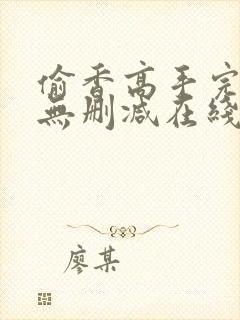 偷香高手完
無刪減在綫
廖某